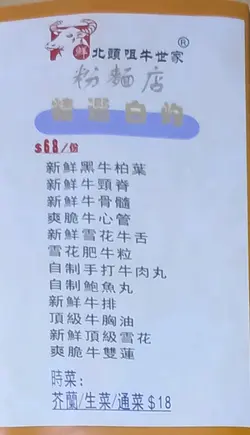 鮮
北頭咀牛世家®
粉麵店
精選白灼
$68/份
新鮮黑牛柏葉
新鮮牛頸脊
新鮮牛骨髓
爽脆牛心管
新鮮雪花牛舌
雪花肥牛粒
自制手打牛肉丸
自制鮑魚丸
新鮮牛排
頂級牛胸油
新鮮頂級雪花
爽脆牛雙蓮
時菜：
芥蘭/生菜/通菜 $18